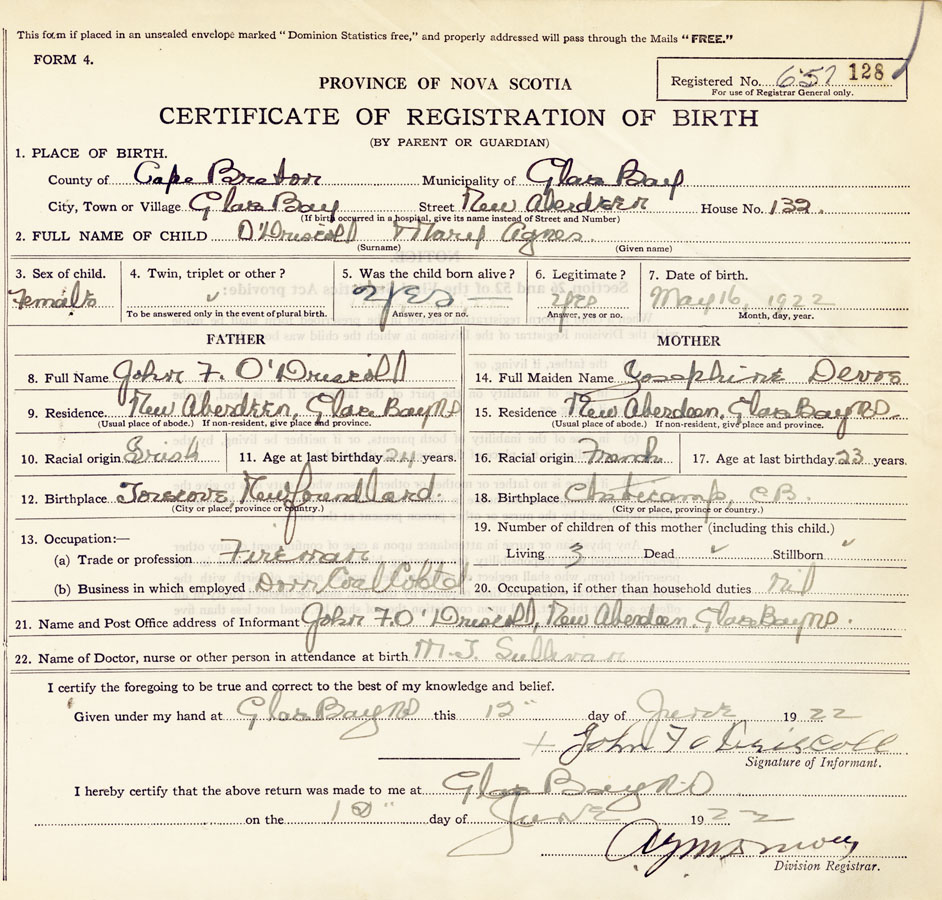 This form if placed in an unsealed envelope marked "Dominion Statistics free," and properly addressed will pass through the Mails "FREE."
FORM 4.
Registered No. 657 128
For use of Registrar General only.
PROVINCE OF NOVA SCOTIA
CERTIFICATE OF REGISTRATION OF BIRTH
(BY PARENT OR GUARDIAN)
1. PLACE OF BIRTH.
County of Cape Breton Municipality of Glace Bay
City, Town or Village Glace Bay Street New Aberdeen House No. 132.
(If birth occurred in a hospital, give its name instead of Street and Number)
2. FULL NAME OF CHILD O'Driscoll Mary Agnes.
(Surname) (Given name)
3. Sex of child. 4. Twin, triplet or other? 5. Was the child born alive? 6. Legitimate? 7. Date of birth.
Female yes yes May 16, 1922
To be answered only in the event of plural birth. Answer, yes or no. Answer, yes or no. Month, day, year.
FATHER MOTHER
8. Full Name John F. O'Driscoll 14. Full Maiden Name Josephine Devoe
9. Residence New Aberdeen, Glace Bay NS 15. Residence New Aberdeen, Glace Bay NS.
(Usual place of abode.) If non-resident, give place and province. (Usual place of abode.) If non-resident, give place and province.
10. Racial origin Irish 11. Age at last birthday 24 years. 16. Racial origin French 17. Age at last birthday 23 years.
12. Birthplace Torscove, Newfoundland. 18. Birthplace Cheticamp, C.B.
(City or place, province or country.) (City or place, province or country.)
13. Occupation:— 19. Number of children of this mother (including this child.)
(a) Trade or profession Fireman Living 3 Dead Stillborn
(b) Business in which employed Dom Coal Co Ltd 20. Occupation, if other than household duties nil
21. Name and Post Office address of Informant John F. O'Driscoll, New Aberdeen, Glace Bay NS.
22. Name of Doctor, nurse or other person in attendance at birth M.J. Sullivan
I certify the foregoing to be true and correct to the best of my knowledge and belief.
Given under my hand at Glace Bay NS this 12" day of June 1922
+ John F O Driscoll
Signature of Informant.
I hereby certify that the above return was made to me at Glace Bay NS
on the day of June 1922
Division Registrar.